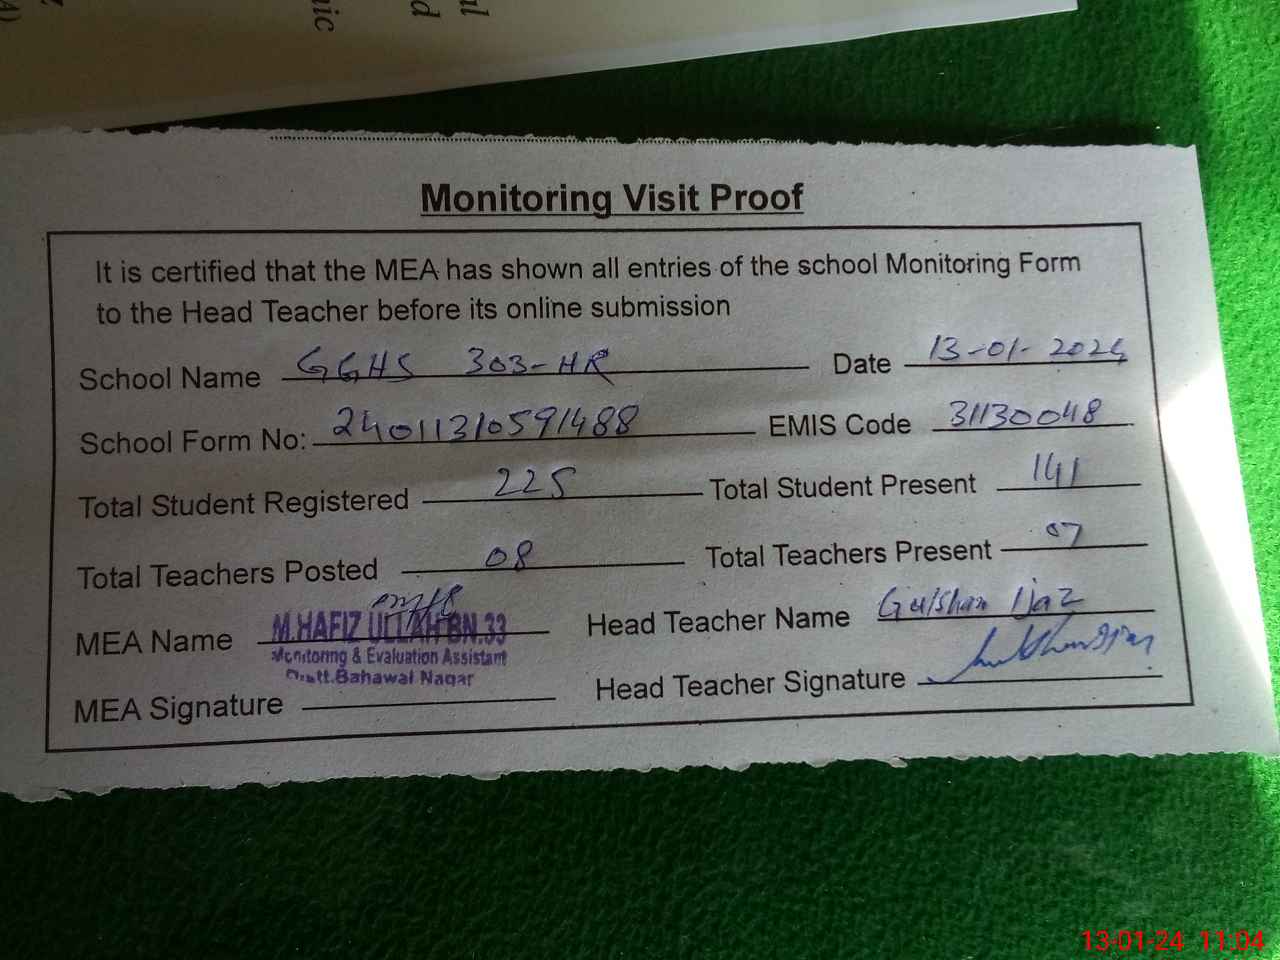 ul
d
nic
A)
Monitoring Visit Proof
It is certified that the MEA has shown all entries of the school Monitoring Form
to the Head Teacher before its online submission
School Name GGHS 303-HR Date 13-01-2024
School Form No: 24011310591488 EMIS Code 31130048
Total Student Registered 225 Total Student Present 141
Total Teachers Posted 08 Total Teachers Present 07
MEA Name M.HAFIZ ULLAH BN.33 Head Teacher Name Gulshan Ijaz
Monitoring & Evaluation Assistant
Distt.Bahawal Nagar
MEA Signature Head Teacher Signature
13-01-24 11:04